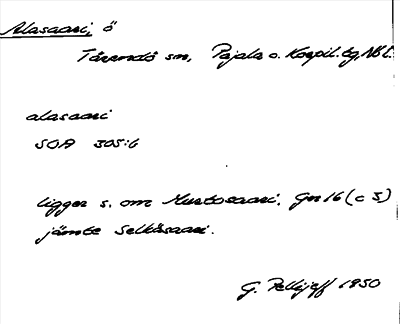 Alasaari, ö
Tärendö sn, Pajala o. Korpil. tg, Nbl.
alasaari
SOA 305:6
ligger s. om Murtosaari. Gr 16 (c 3)
jämte Selkäsaari.
G. Pellijeff 1950